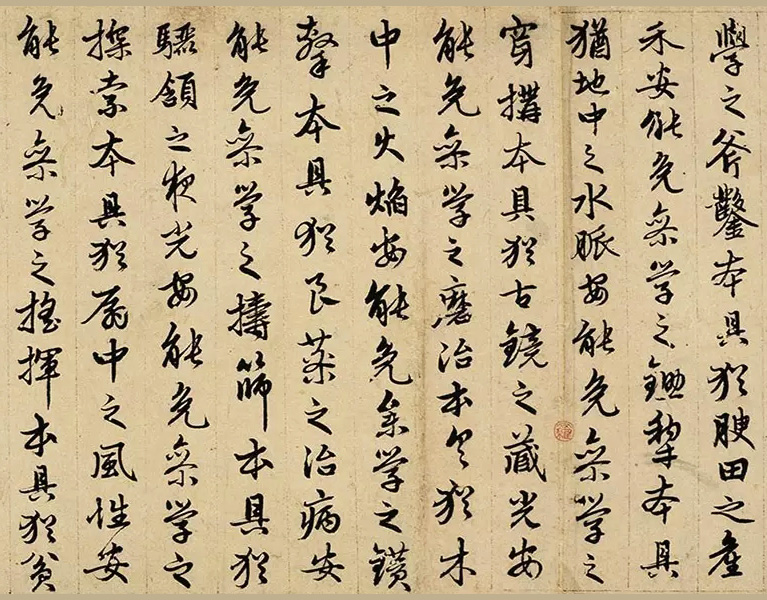 學之斧鑿本具猶腴田之產
禾安能免參學之鋤犁本具
猶地中之水脈安能免參學之
穿搆本具猶古鏡之藏光安
能免參學之磨治本具猶木
中之火焰安能免參學之鑽
本具猶良藥之治病安
能免參學之擣篩本具猶
驪頷之夜光安能免參學之
探索本具猶扇中之風性安
能免參學之搖揮本具猶貧